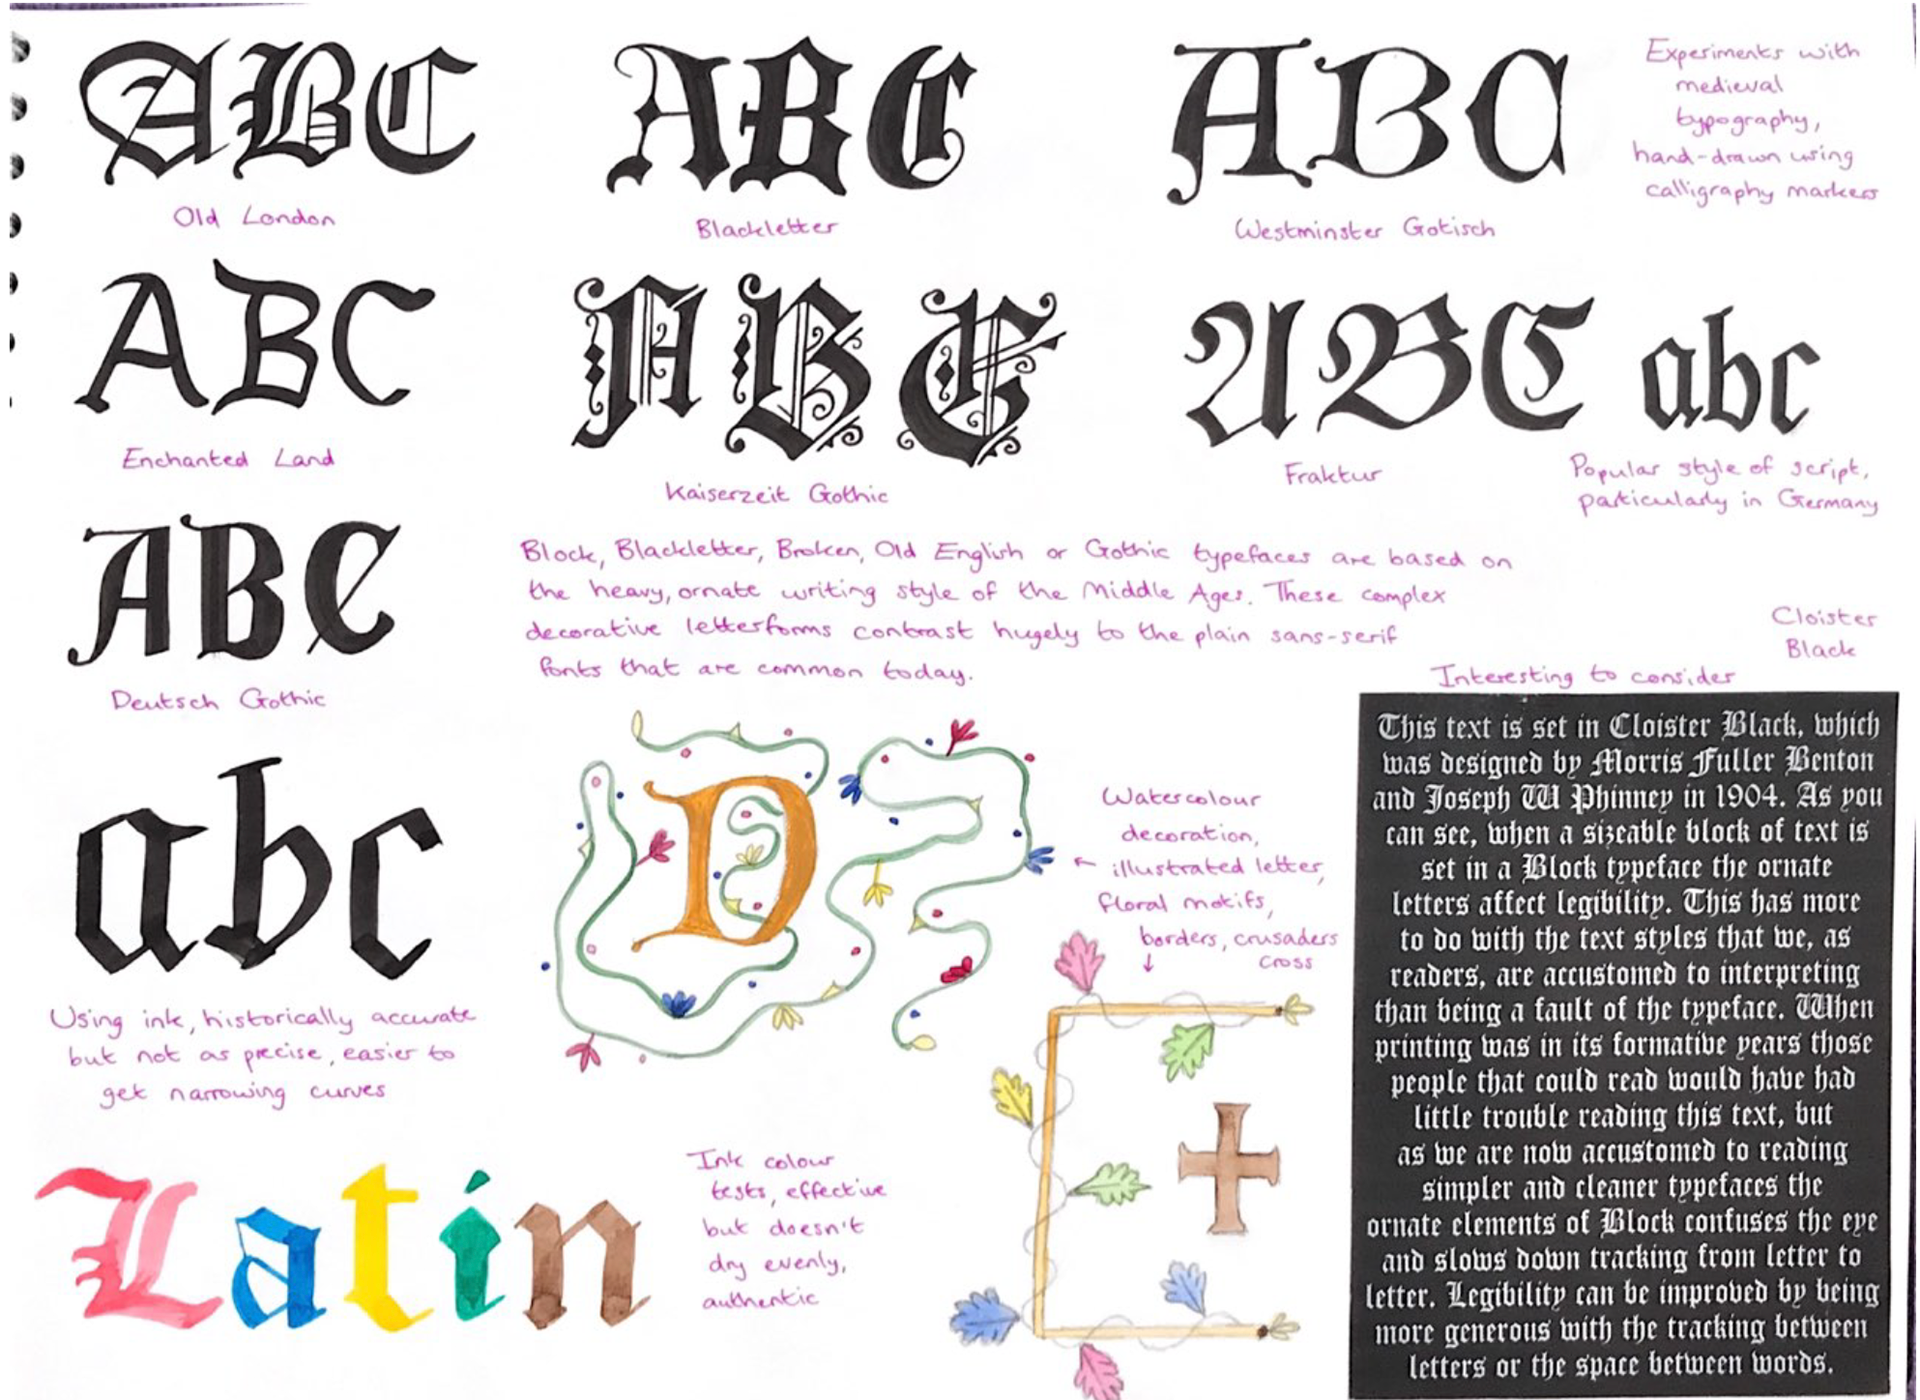 ABC
Old London
ABC
Blackletter
ABC
Westminster Gotisch
Experiments with
medieval
typography,
hand-drawn using
calligraphy markers
ABC
Enchanted Land
ABC
Kaiserzeit Gothic
ABC abc
Fraktur
Popular style of script,
particularly in Germany
ABC
Deutsch Gothic
Block, Blackletter, Broken, Old English or Gothic typefaces are based on
the heavy, ornate writing style of the Middle Ages. These complex
decorative letterforms contrast hugely to the plain sans-serif
fonts that are common today.
Cloister
Black
Interesting to consider
This text is set in Cloister Black, which
was designed by Morris Fuller Benton
and Joseph W Phinney in 1904. As you
can see, when a sizeable block of text is
set in a Block typeface the ornate
letters affect legibility. This has more
to do with the text styles that we, as
readers, are accustomed to interpreting
than being a fault of the typeface. When
printing was in its formative years those
people that could read would have had
little trouble reading this text, but
as we are now accustomed to reading
simpler and cleaner typefaces the
ornate elements of Block confuses the eye
and slows down tracking from letter to
letter. Legibility can be improved by being
more generous with the tracking between
letters or the space between words.
abc
Using ink, historically accurate
but not as precise, easier to
get narrowing curves
D
Watercolour
decoration,
illustrated letter,
floral motifs,
borders, crusaders
cross
Latin
Ink colour
tests, effective
but doesn't
dry evenly,
authentic